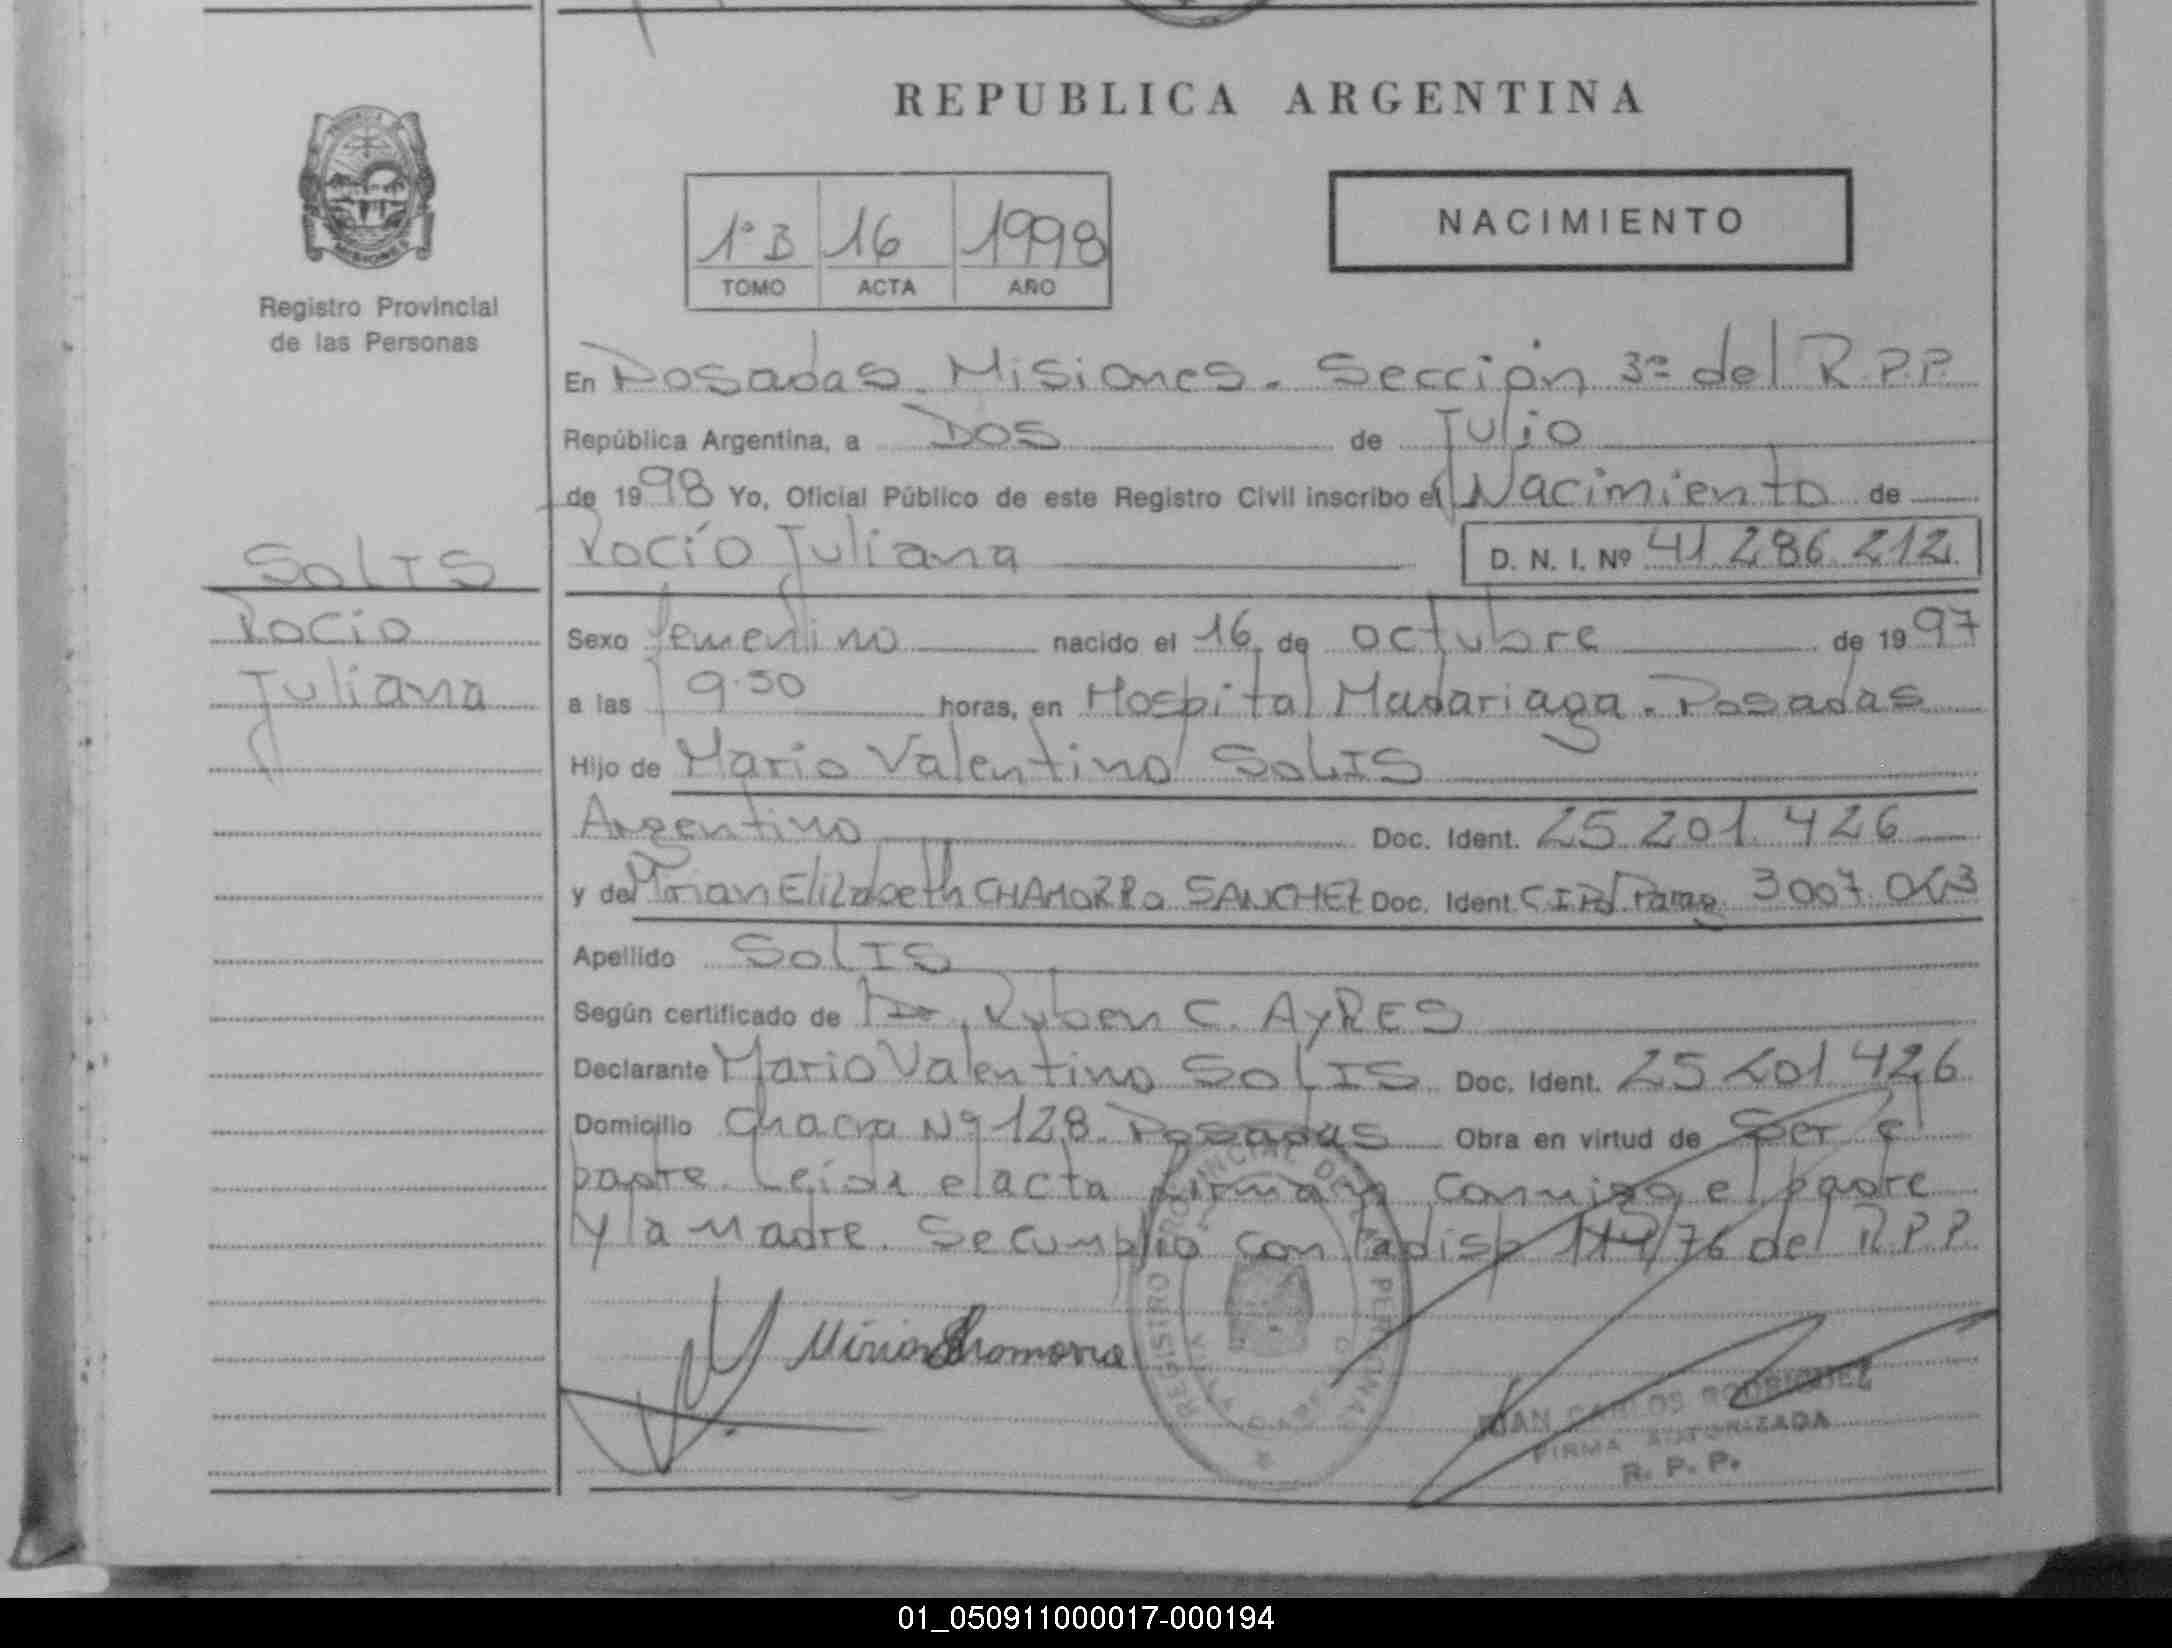 REPUBLICA ARGENTINA
1º B 16 1998
TOMO ACTA AÑO
NACIMIENTO
Registro Provincial
de las Personas
SOLIS
Rocío
Juliana
En Posadas. Misiones. Sección 3ª del R.P.P.
República Argentina, a Dos de Julio
de 1998 Yo, Oficial Público de este Registro Civil inscribo el Nacimiento de
Rocío Juliana D. N. I. Nº 41.286.212
Sexo femenino nacido el 16 de octubre de 1997
a las 9.50 horas, en Hospital Madariaga. Posadas
Hijo de Mario Valentino SOLIS
Argentino Doc. Ident. 25.201.426
y de Elizabeth CHAMORRO SANCHEZ Doc. Ident. Parag.
Apellido SOLIS
Según certificado de Dr. Ruben C. AYRES
Declarante Mario Valentino SOLIS Doc. Ident. 25.201.426
Domicilio Chacra Nº 128. Posadas Obra en virtud de Ser el
padre. Leida el acta firman conmigo el padre
y la madre. Se cumplió con la disp 114/76 del R.P.P.
REGISTRO PROVINCIAL DE LAS PERSONAS
JUAN CARLOS RODRIGUEZ
FIRMA AUTORIZADA
R. P. P.
01_050911000017-000194